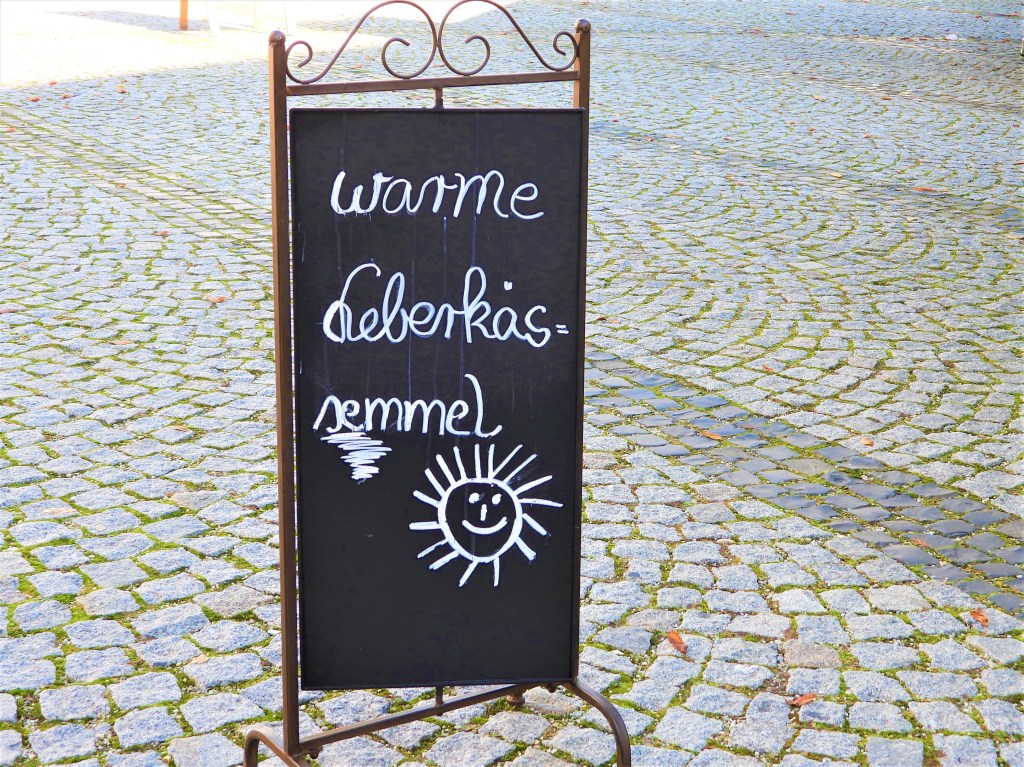 warme
Leberkäs=
semmel